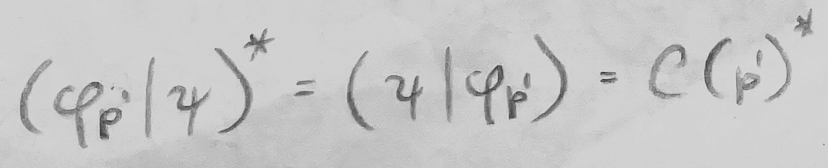 (φ_p'|ψ)* = (ψ|φ_p') = C(p')*